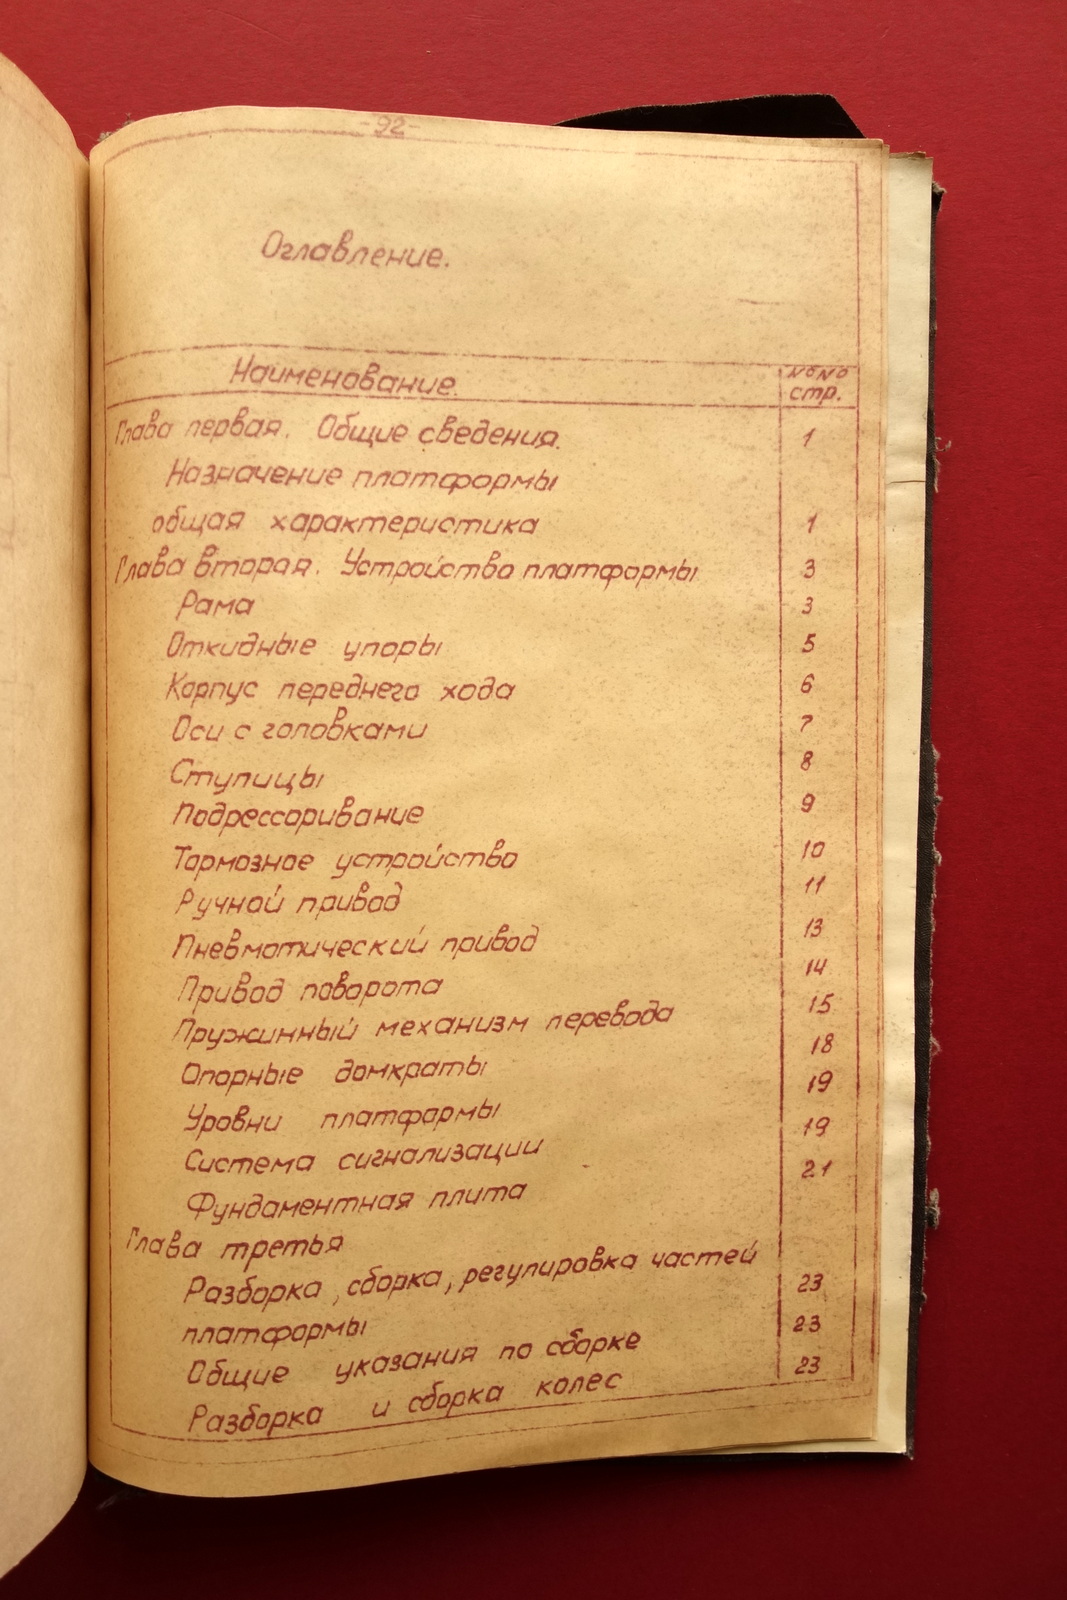 -92-
Оглавление.
Наименование. №№ стр.
Глава первая. Общие сведения. 1
Назначение платформы
общая характеристика 1
Глава вторая. Устройство платформы 3
Рама 3
Откидные упоры 5
Корпус переднего хода 6
Оси с головками 7
Ступицы 8
Подрессоривание 9
Тормозное устройство 10
Ручной привод 11
Пневмотический привод 13
Привод поворота 14
Пружинный механизм перевода 15
Опорные домкраты 18
Уровни платформы 19
Система сигнализации 19
Фундаментная плита 21
Глава третья
Разборка, сборка, регулировка частей
платформы 23
Общие указания по сборке 23
Разборка и сборка колес 23